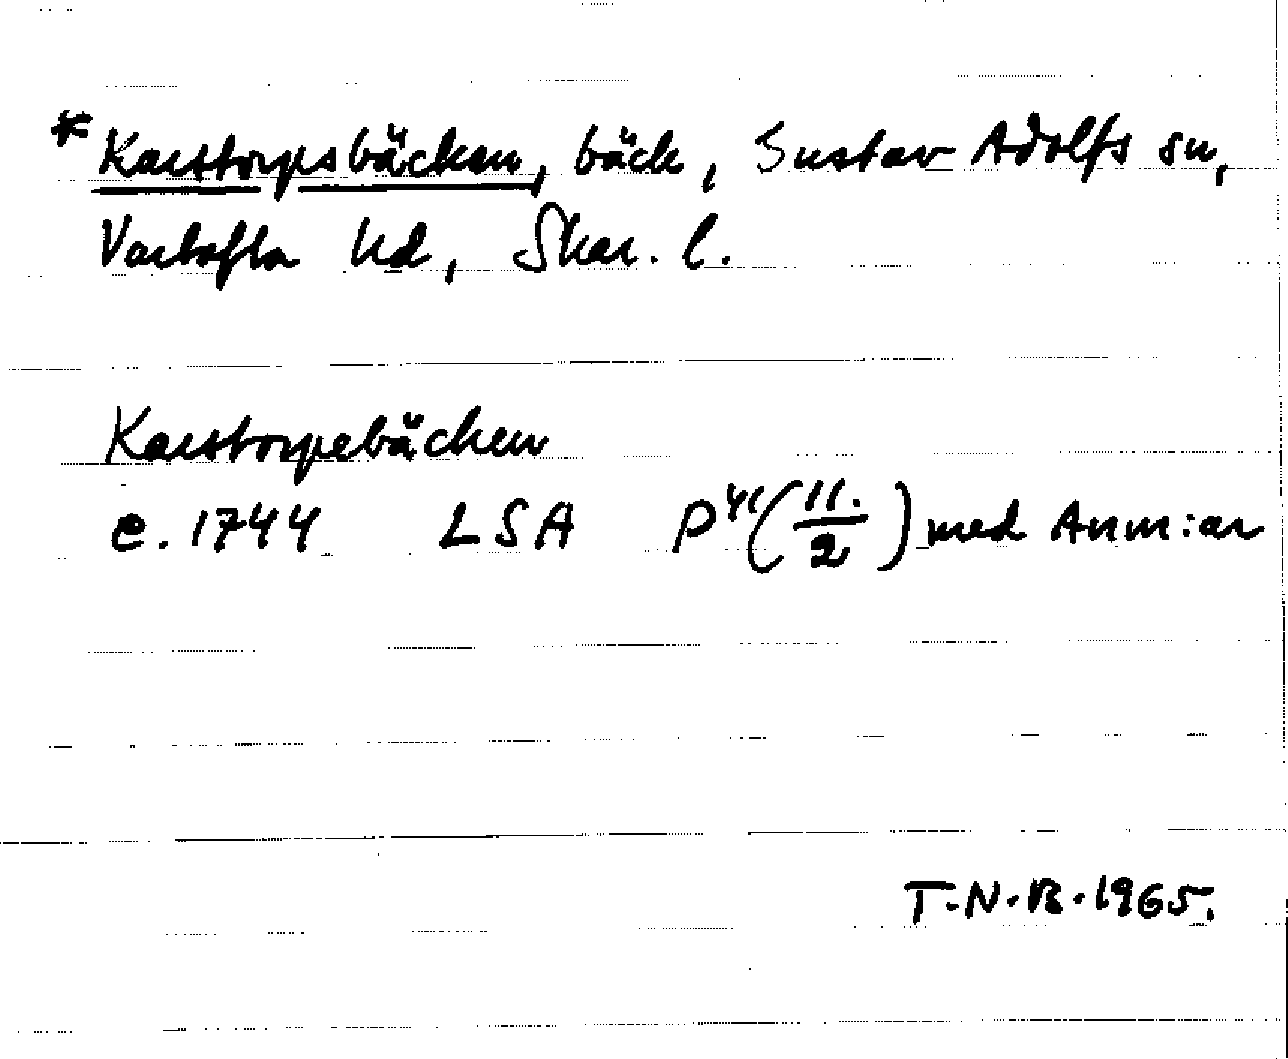 *Karstorpsbäcken, bäck, Gustav Adolfs sn,
Vartofta hd, Skar. l.
Karstorpebäcken
e. 1744 LSA P41(11:/2) med Anm:ar
T.N.R. 1965.